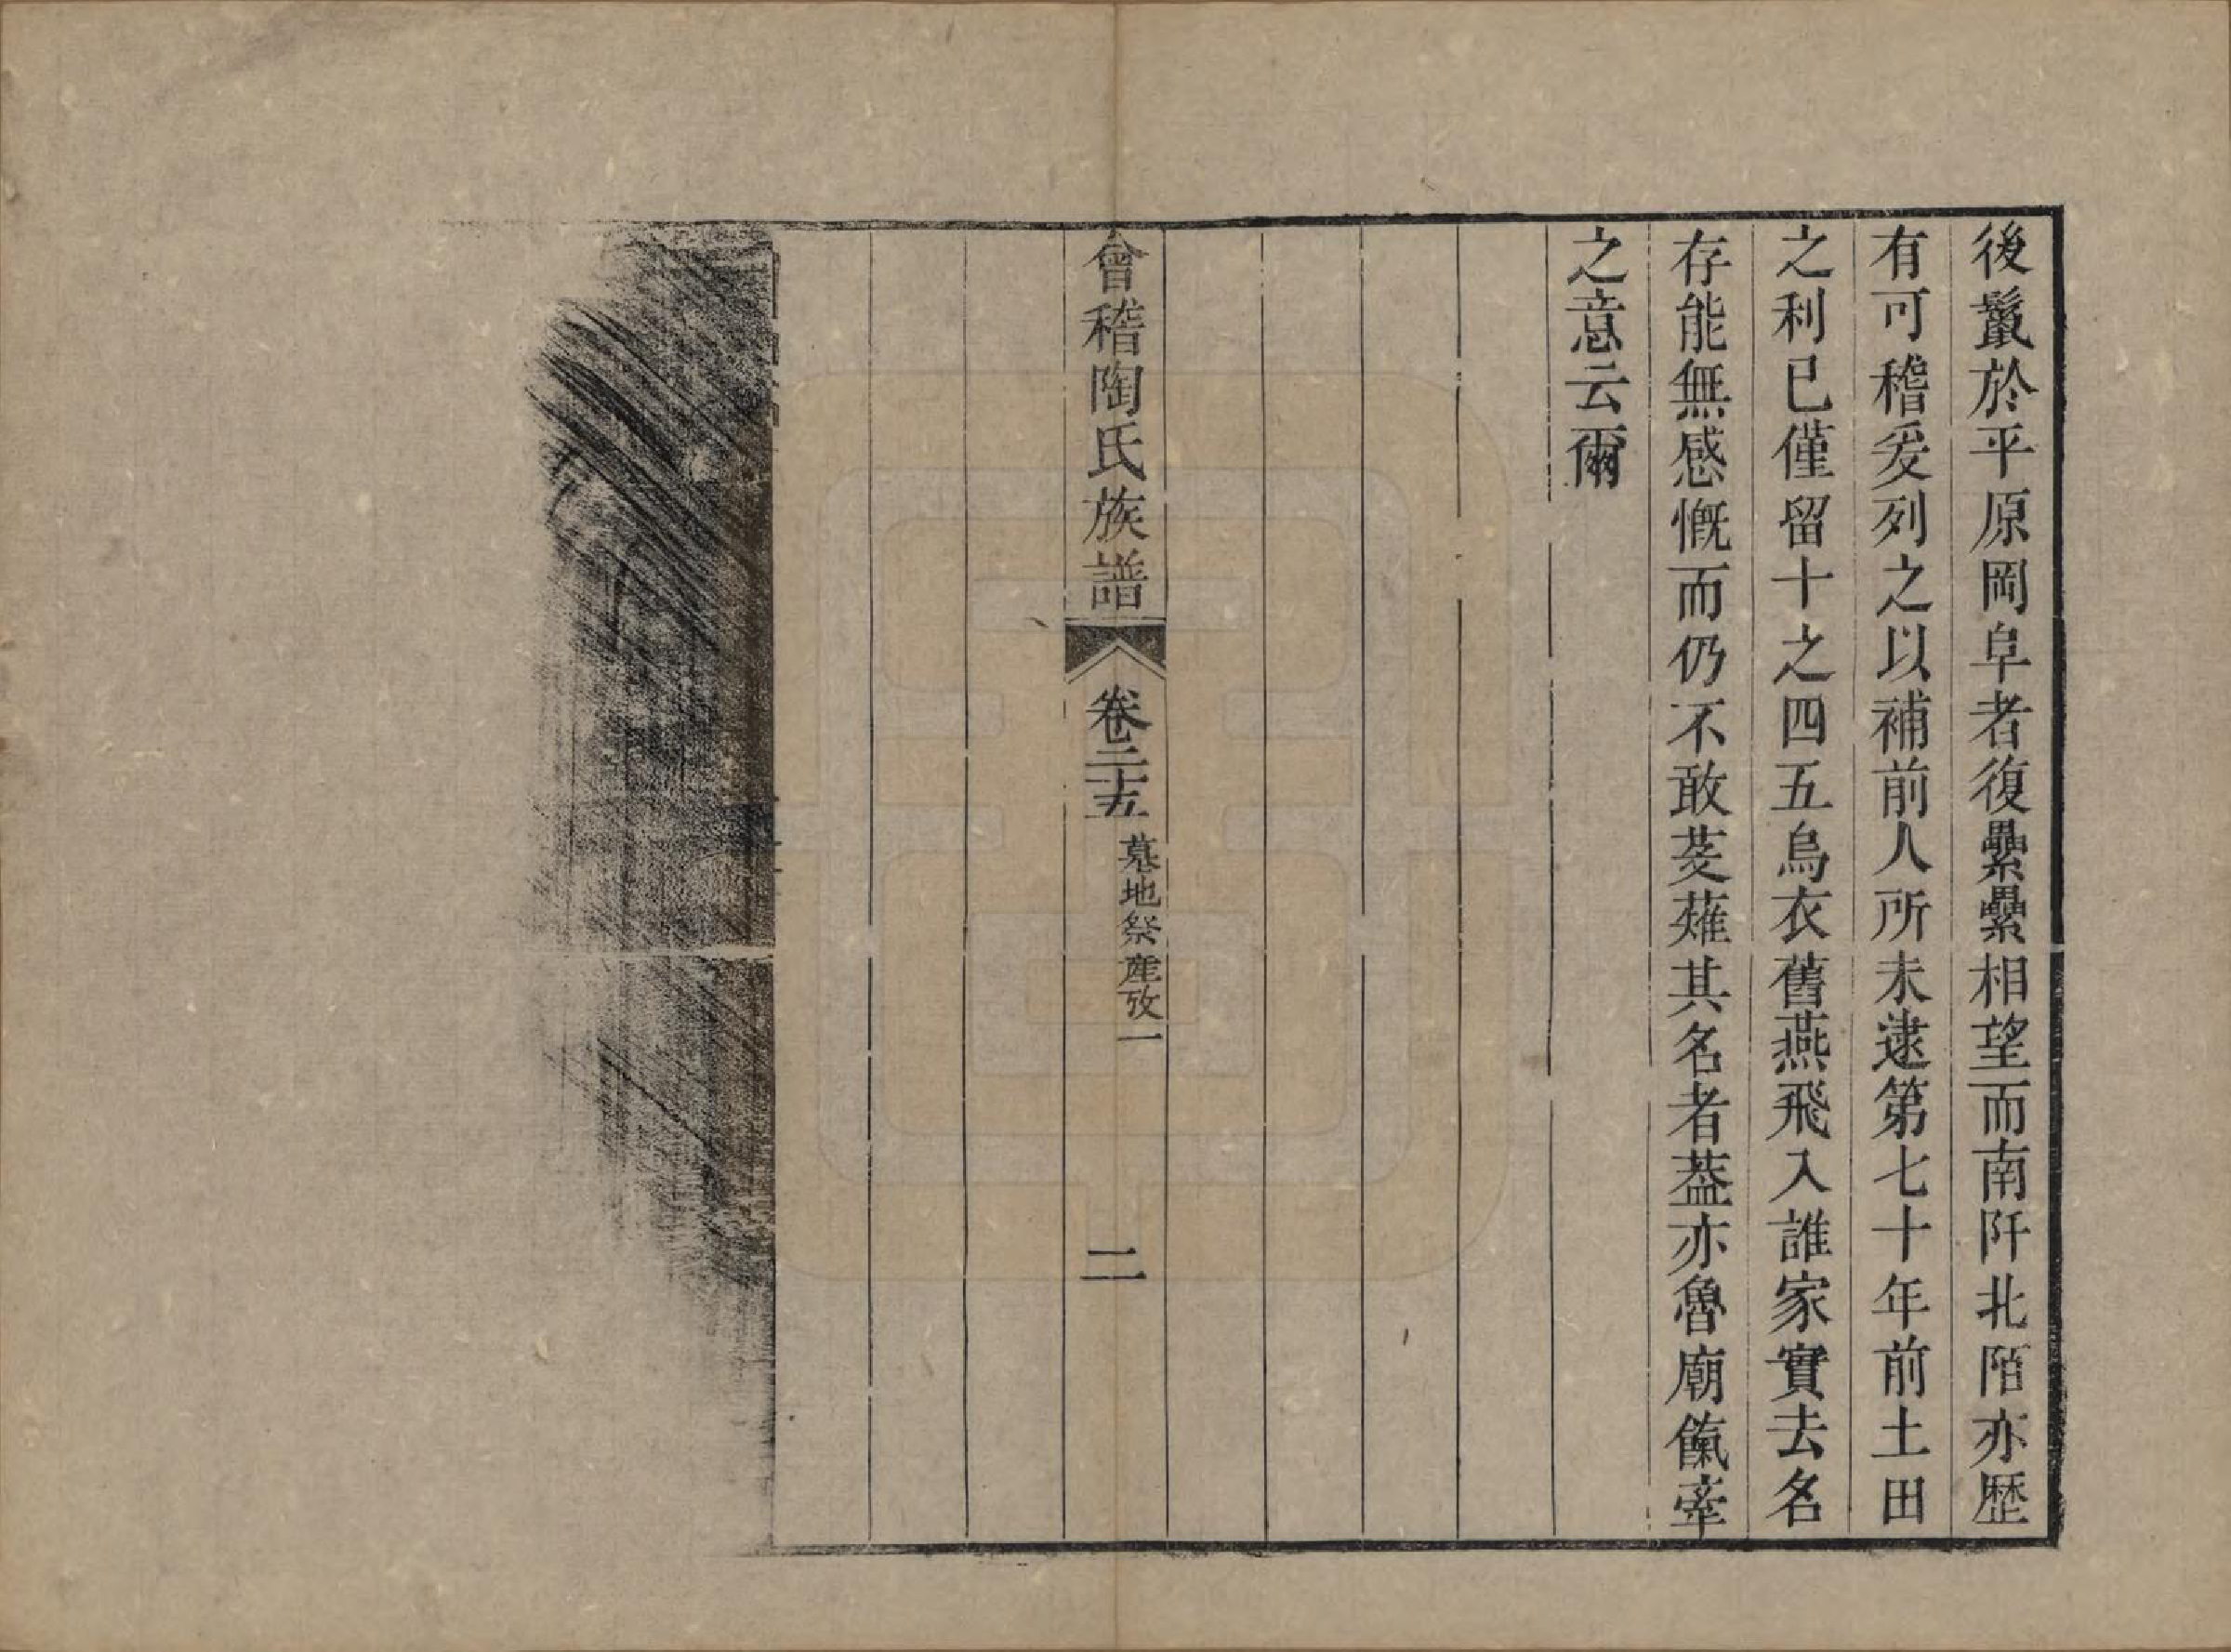 後鬣於平原岡阜者復纍纍相望而南阡北陌亦歷
有可稽爰列之以補前人所未逮第七十年前土田
之利已僅留十之四五烏衣舊燕飛入誰家實去名
存能無感慨而仍不敢芟薙其名者葢亦魯廟餼牽
之意云爾
會稽陶氏族譜
卷二十五
墓地祭產攷一
二